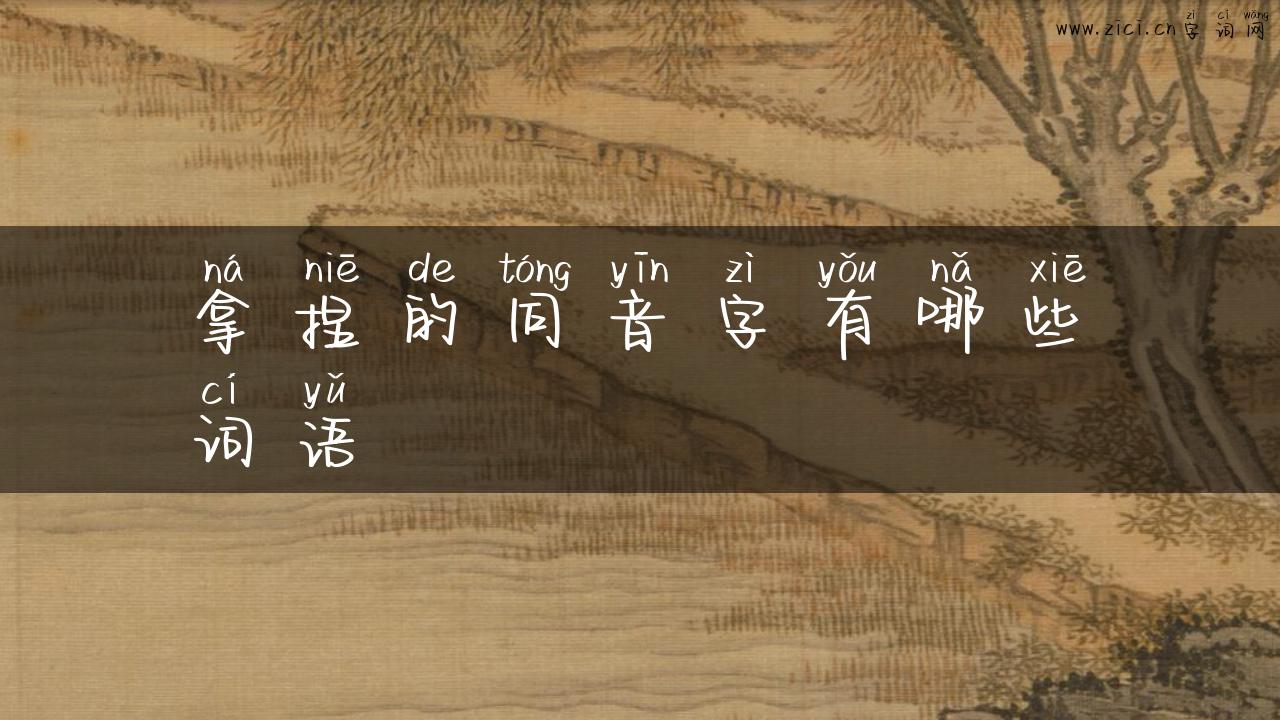 zì cí wǎng
www.zici.cn字词网
ná niē de tóng yīn zì yǒu nǎ xiē
拿捏的同音字有哪些
cí yǔ
词语